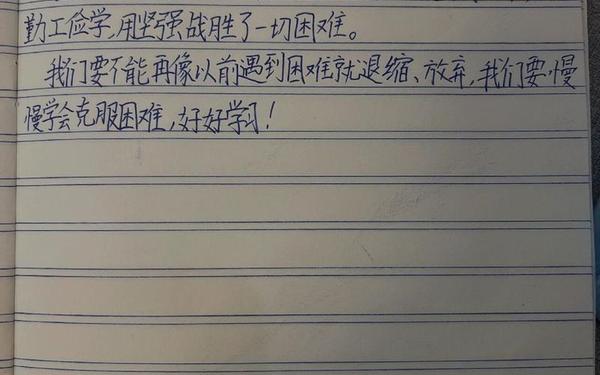 勤工俭学,用坚强战胜了一切困难。
我们要不能再像以前遇到困难就退缩、放弃,我们要慢
慢学会克服困难,好好学习!